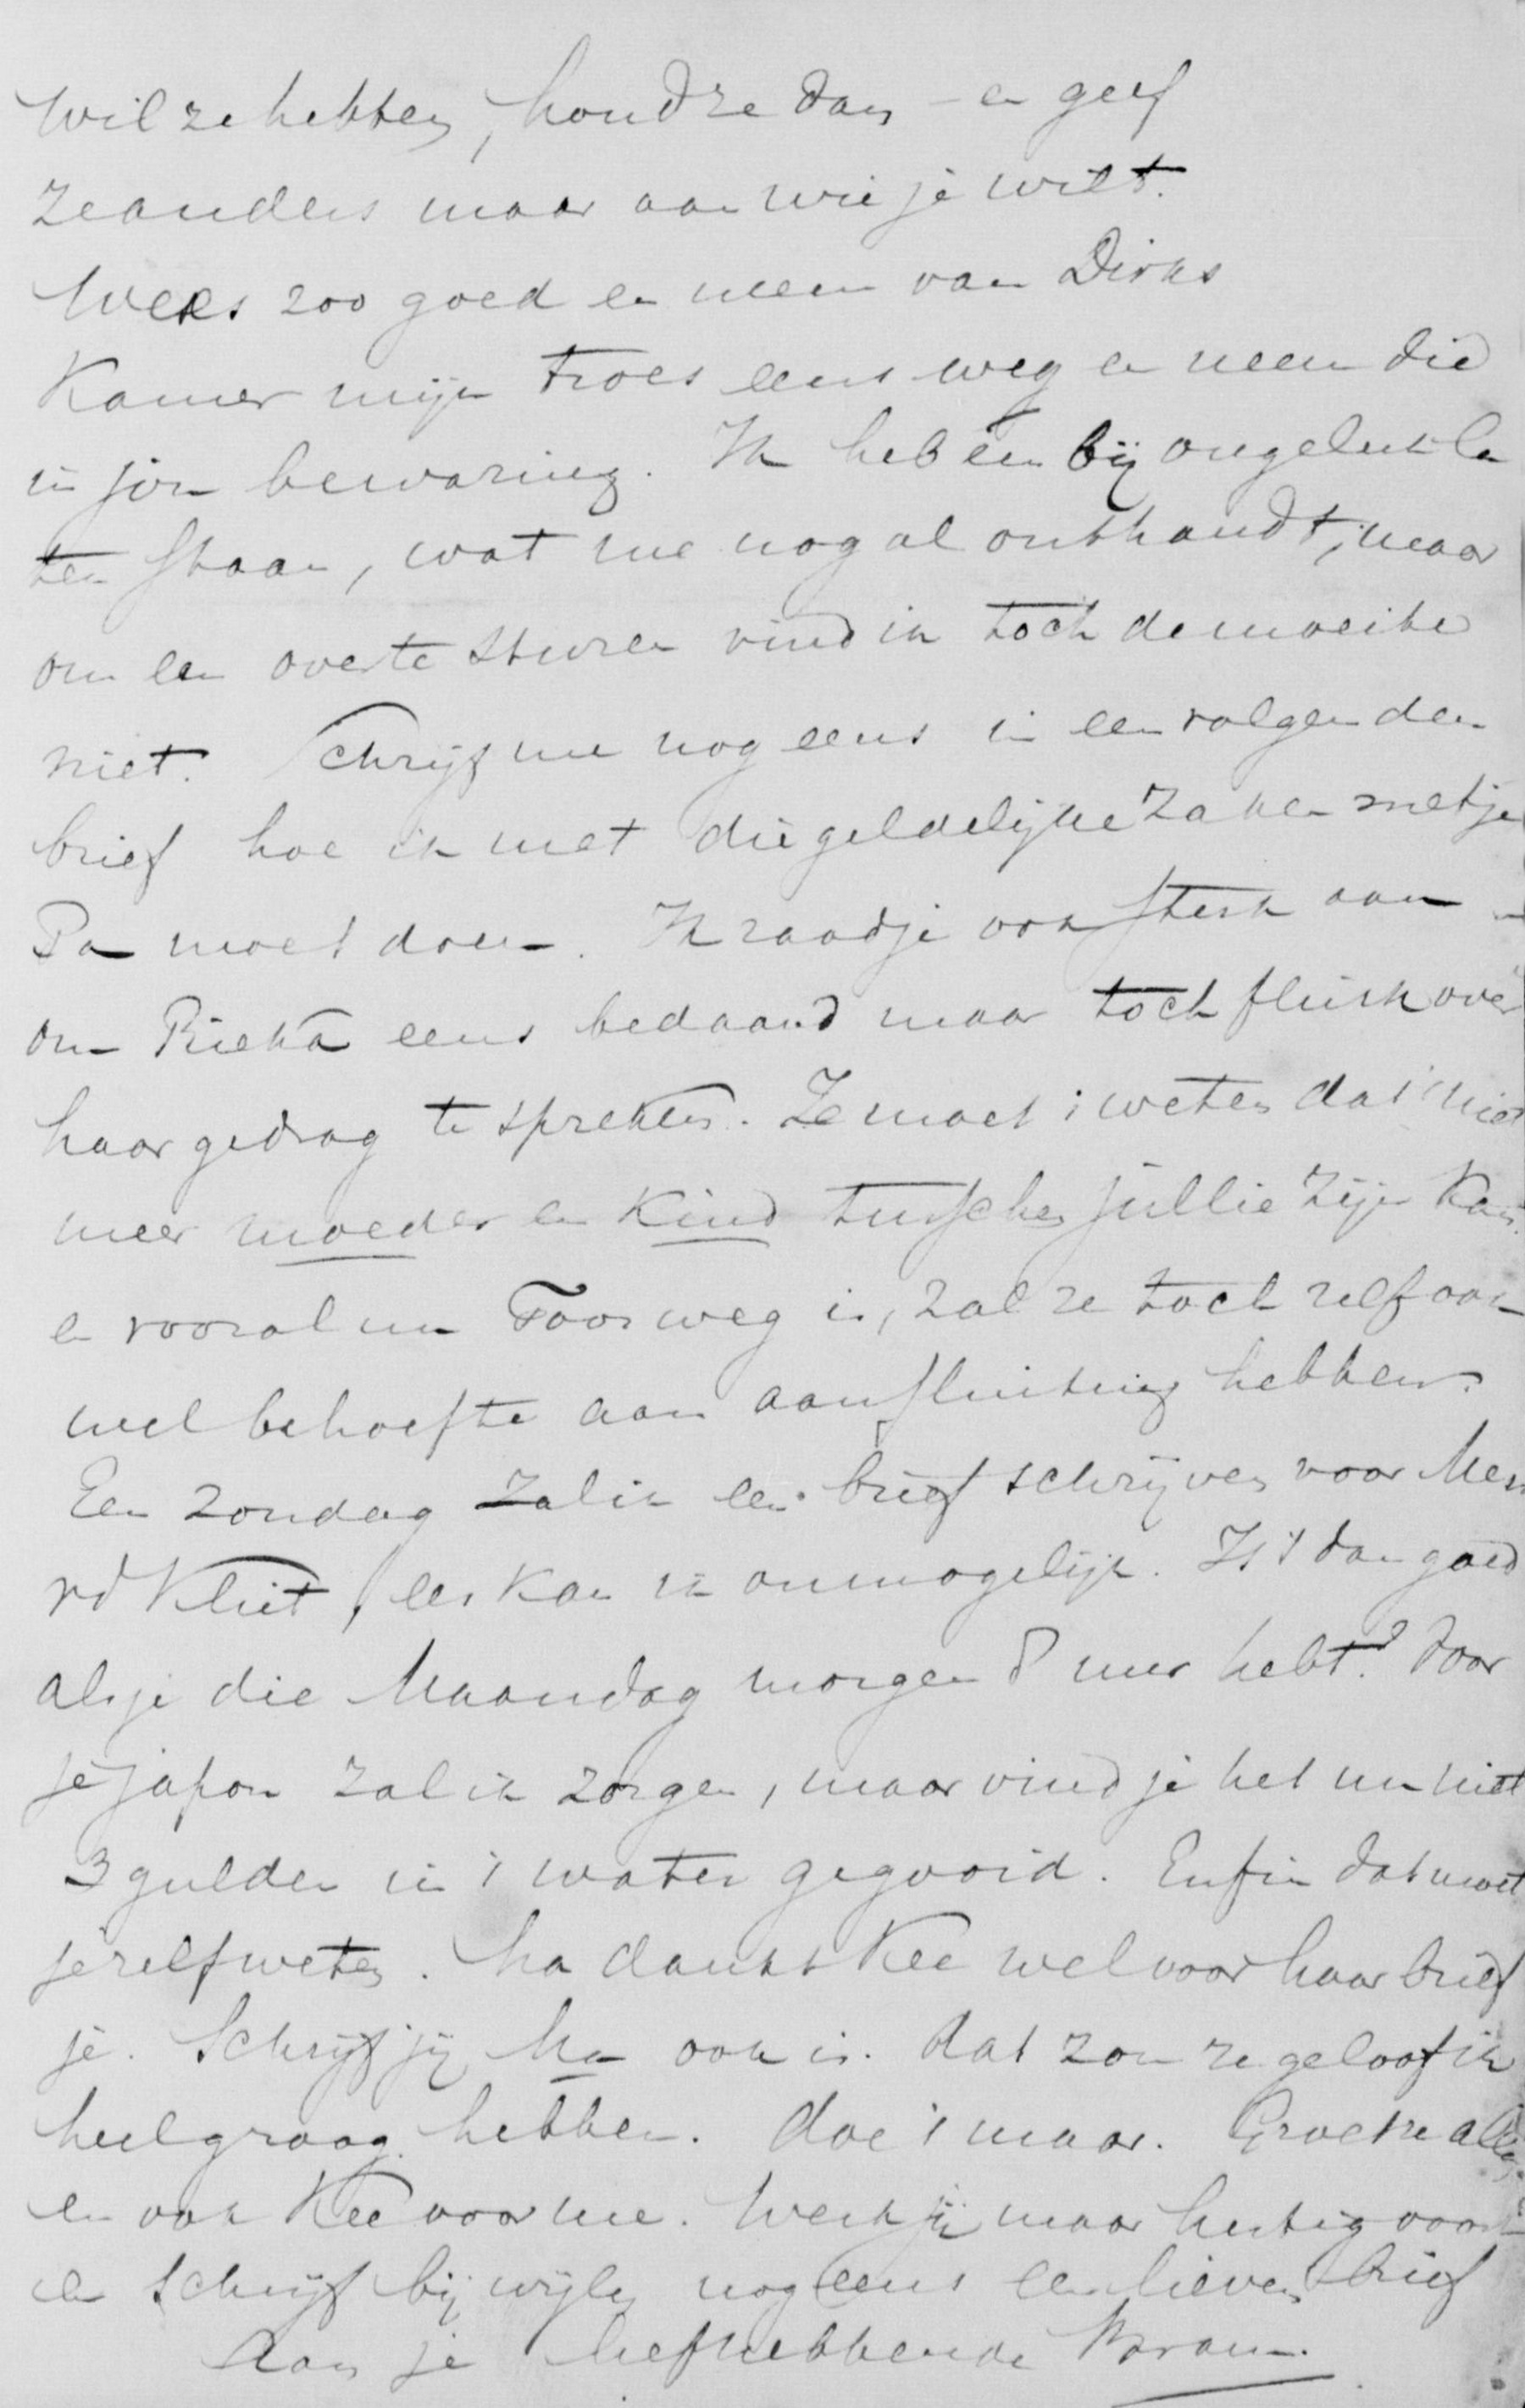 wil ze hebben, houd ze dan – en geef
ze anders maar aan wie je wilt.
Wees zoo goed en neem van Dirks
Kamer mijn troes eens weg en neem die
in jou bewaring. Ik heb een bij ongeluk la
ten staan, wat me nog al onthandt, maar
om een over te sturen vind ik toch de moeite
niet. Schrijf me nog eens in een volgenden
brief hoe ik met die geldelijke zaken met je
Pa moet doen. Ik raad je ook sterk aan
om Rieka eens bedaard maar toch flink over
haar gedrag te spreken. Ze moet 't weten dat 't niet
meer moeder en kind tusschen jullie zijn kan.
en vooral nu Toos weg is, zal ze toch zelf ook
wel behoefte aan aansluiting hebben.
Een Zondag zal ik een brief schrijven voor Mevr
vd Vliet, eer kan ik onmogelijk. Is 't dan goed
als je die Maandag morgen 8 uur hebt? Voor
je japon zal ik zorgen, maar vind je het nu niet
3 gulden in 't water gegooid. Enfin dat moet
je zelf weten. Ma dankt Kee wel voor haar brief
je. Schrijf jij Ma ook is. dat zou ze geloof ik
heel graag hebben. doe 't maar. Groet ze allen
en ook Kee voor me. Werk jij maar hartig voort
en schrijf bij wijlen nog eens een lieven brief
Aan je liefhebbende Bram.